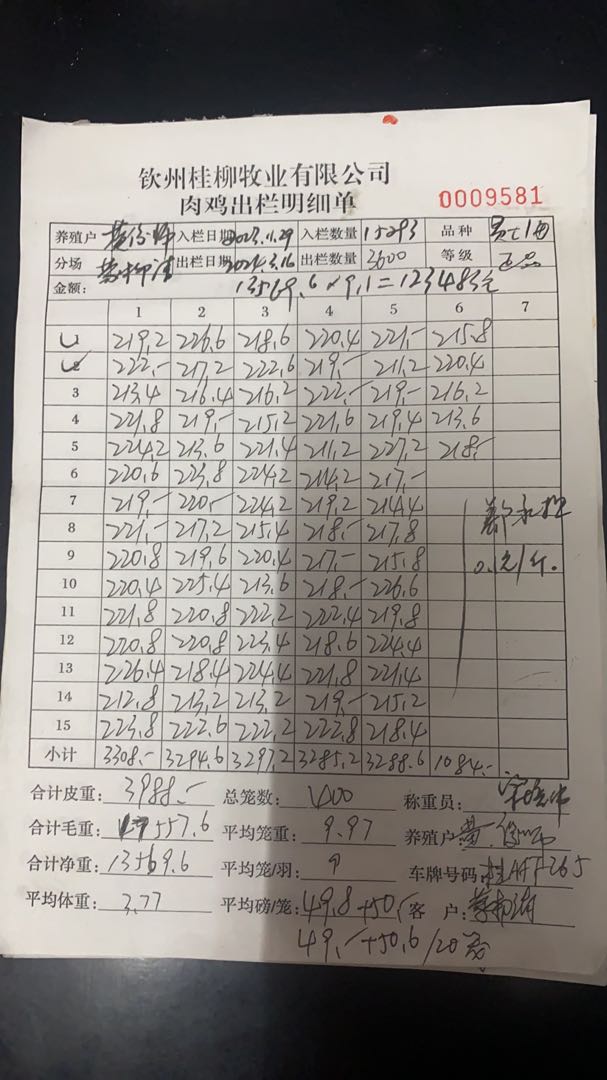 钦州桂柳牧业有限公司
肉鸡出栏明细单
0009581
养殖户 入栏日期 2023.11.29 入栏数量 15293 品种
分场 出栏日期 2024.3.16 出栏数量 3600 等级 正品
金额: 13569.6×9.1=123483元
1 2 3 4 5 6 7
1 219.2 226.6 218.6 220.4 221.- 215.8
2 222.- 217.2 222.6 219.- 211.2 220.4
3 213.4 216.4 216.2 222.- 219.- 216.2
4 221.8 219.- 215.2 221.6 219.4 213.6
5 224.2 213.6 221.4 211.2 227.2 218.-
6 220.6 223.8 224.2 214.2 217.-
7 219.- 220.- 224.2 219.2 214.4
8 221.- 217.2 215.4 218.- 217.8
9 220.8 219.6 220.4 217.- 215.8
10 220.4 225.4 213.6 218.- 226.6
11 221.8 220.8 222.2 222.4 219.8
12 220.8 220.8 223.4 218.6 224.4
13 226.4 218.4 224.4 221.8 221.4
14 212.8 213.2 213.2 219.- 215.2
15 223.8 222.6 222.2 222.8 218.4
小计 3308.- 3294.6 3297.2 3285.2 3288.6 1084.-
合计皮重: 3988.- 总笼数: 400 称重员:
合计毛重: 17557.6 平均笼重: 9.97 养殖户
合计净重: 13569.6 平均笼/羽: 9 车牌号码:
平均体重: 3.77 平均磅/笼: 49.8+50.- 客户:
49.-+50.6/20笼